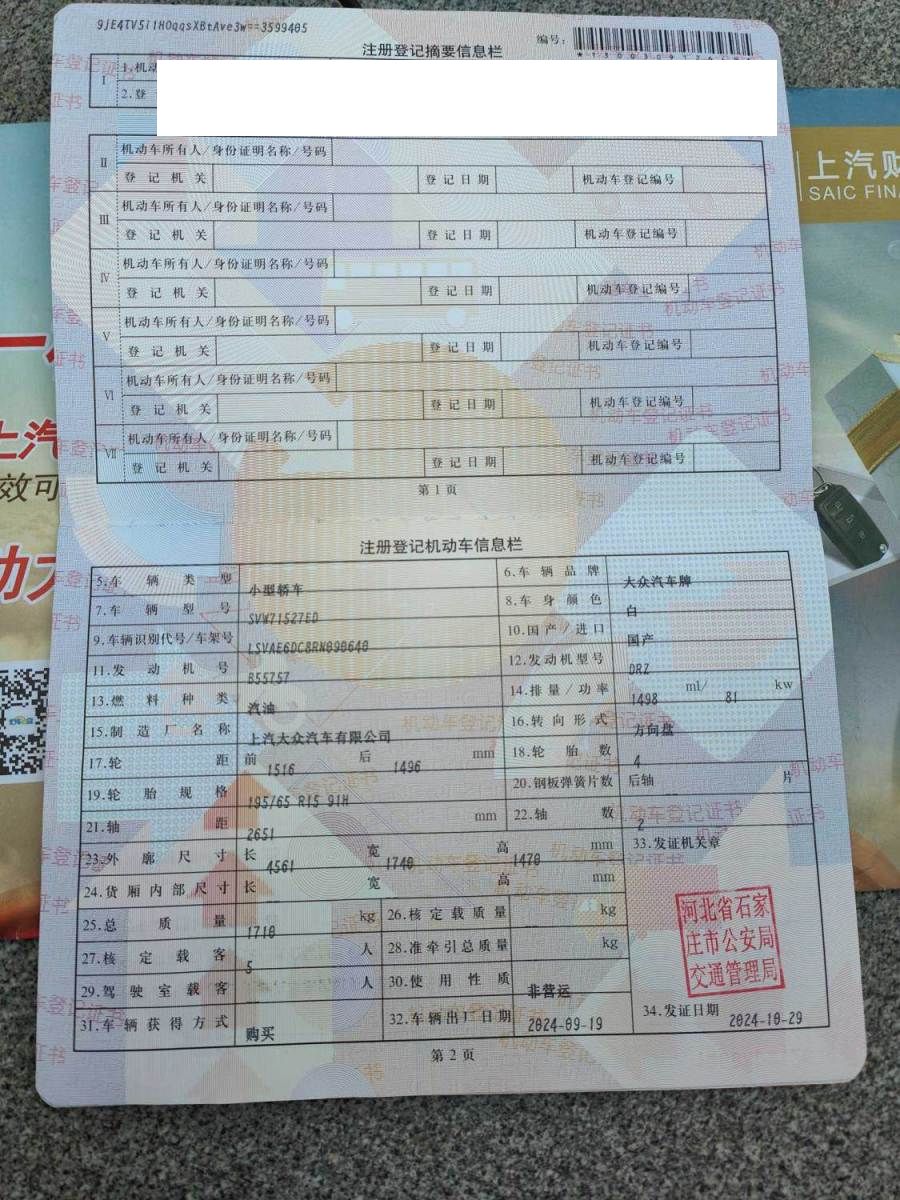 9jE4TV5i1HOqqsXBtAve3w==3599405
注册登记摘要信息栏
编号：
I
1.机动
2.登
II 机动车所有人/身份证明名称/号码
登记机关 登记日期 机动车登记编号
III 机动车所有人/身份证明名称/号码
登记机关 登记日期 机动车登记编号
IV 机动车所有人/身份证明名称/号码
登记机关 登记日期 机动车登记编号
V 机动车所有人/身份证明名称/号码
登记机关 登记日期 机动车登记编号
VI 机动车所有人/身份证明名称/号码
登记机关 登记日期 机动车登记编号
VII 机动车所有人/身份证明名称/号码
登记机关 登记日期 机动车登记编号
第1页
注册登记机动车信息栏
5.车辆类型 小型轿车 6.车辆品牌 大众汽车牌
7.车辆型号 SVW71527ED 8.车身颜色 白
9.车辆识别代号/车架号 LSVAE6DC8RN090640 10.国产/进口 国产
11.发动机号 B55757 12.发动机型号 DRZ
13.燃料种类 汽油 14.排量/功率 1498 ml/ 81 kw
15.制造厂名称 上汽大众汽车有限公司 16.转向形式 方向盘
17.轮距 前 1516 后 1496 mm 18.轮胎数 4
19.轮胎规格 195/65 R15 91H 20.钢板弹簧片数 后轴 -- 片
21.轴距 2651 mm 22.轴数 2
23.外廓尺寸 长 4561 宽 1740 高 1470 mm 33.发证机关章
24.货厢内部尺寸 长 宽 高 mm
25.总质量 1710 kg 26.核定载质量 -- kg
27.核定载客 5 人 28.准牵引总质量 -- kg
29.驾驶室载客 -- 人 30.使用性质 非营运
31.车辆获得方式 购买 32.车辆出厂日期 2024-09-19 34.发证日期 2024-10-29
河北省石家
庄市公安局
交通管理局
第2页
上汽财
SAIC FINA
上汽
效可